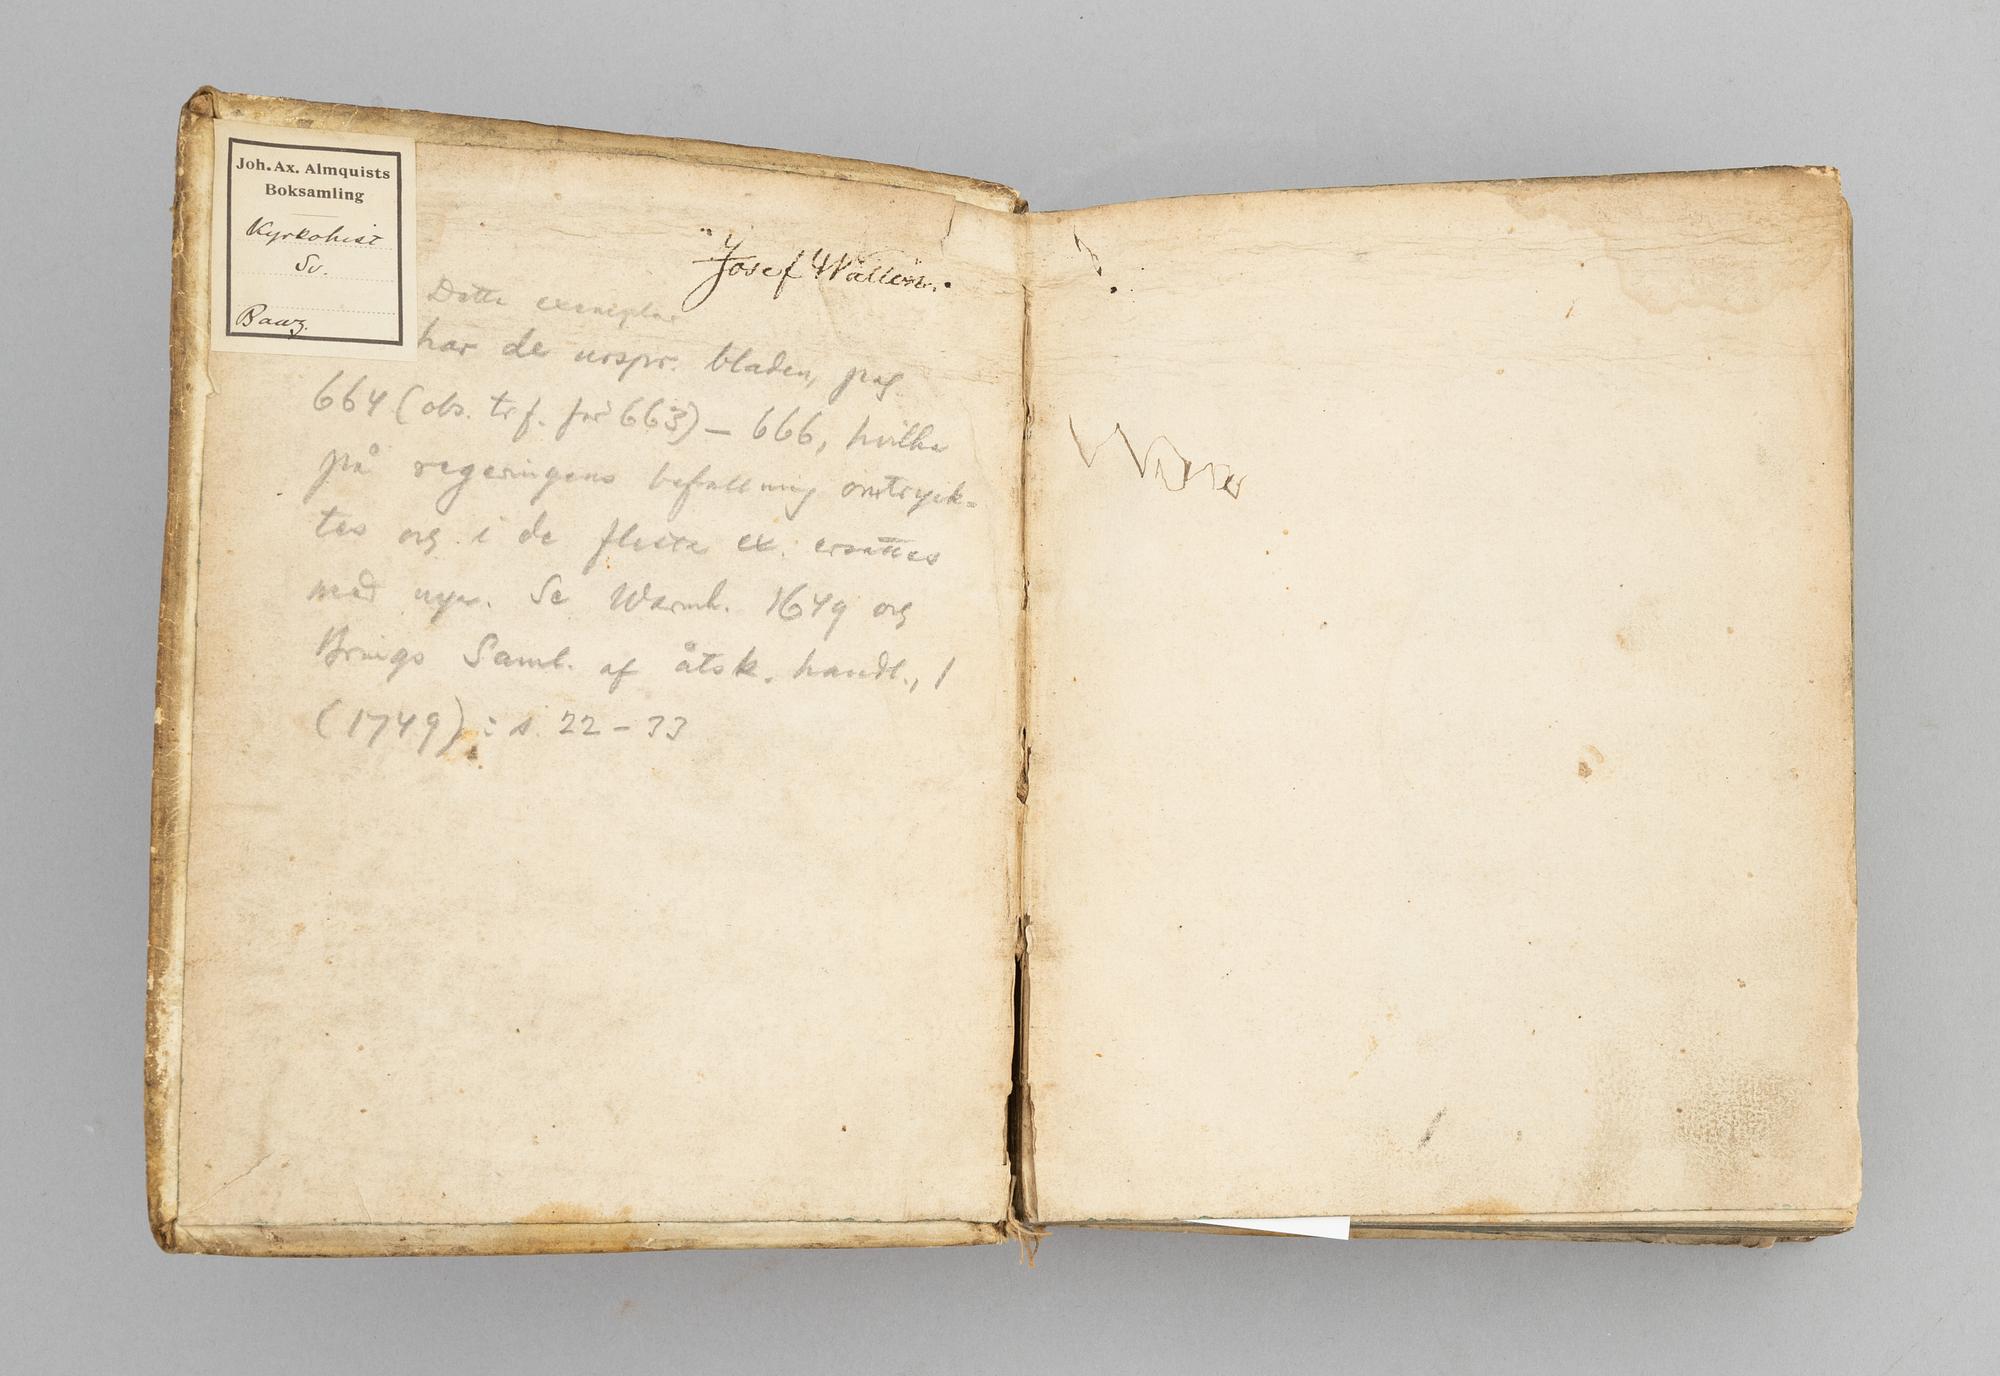 Joh. Ax. Almquists
Boksamling
Kyrkohist
Sv.
Baaz.
Josef Wallén.
Detta exemplar
har de urspr. bladen, pag.
664 (obs. trf. för 663) — 666, hvilka
på regeringens befallning omtryck-
tes och i de flesta ex. ersattes
med nya. Se Warmh. 1649 och
Brings Saml. af åtsk. handl., 1
(1749): s. 22 – 33